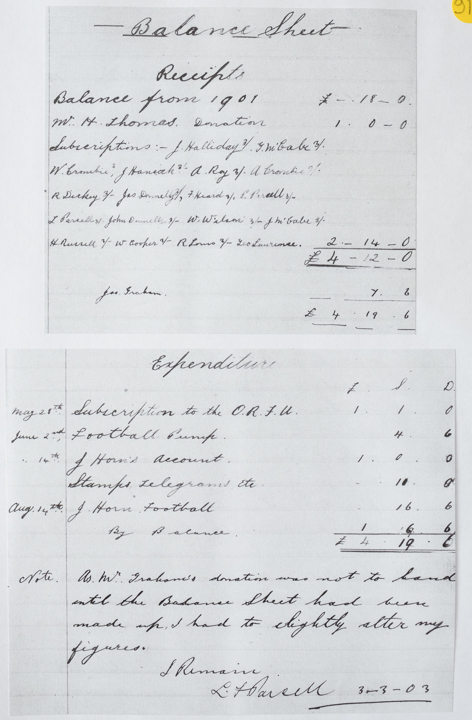 91
Balance Sheet
Receipts
Balance from 1901 £ - . 18 - 0.
Mr. H. Thomas. Donation 1. 0 - 0
Subscriptions :- J. Halliday 2/. G. McCabe 2/.
W. Crombie 2/ J Hancock 2/- A. Roy 2/. A Crombie 2/-
R Dickey 2/- Jas Donnelly 2/. F Heard 2/. E. Parsell 2/-
L Parsell 2/. John Donnelly 2/- W. Watson 2/- J McCabe 2/.
H Russell 2/- W Cooper 2/- R Lowns 2/- Geo Lawrence. 2 - 14 - 0
£ 4 - 12 - 0
Jas. Graham. 7. 6
£ 4. 19. 6
Expenditure
£ S. D
May 28th Subscription to the O.R.F.U. 1. 1. 0
June 2nd, Football Pump. 4. 6
" 14th J Horn's Account. 1. 0. 0
Stamps Telegrams etc - 10. 0
Aug. 14th. J. Horn Football 16. 6
By Balance. 1 6 6
£ 4. 19. 6
Note. As Mr. Graham's donation was not to hand
until the Balance Sheet had been
made up, I had to slightly alter my
figures.
I Remain
L. F Parsell 3-3-03